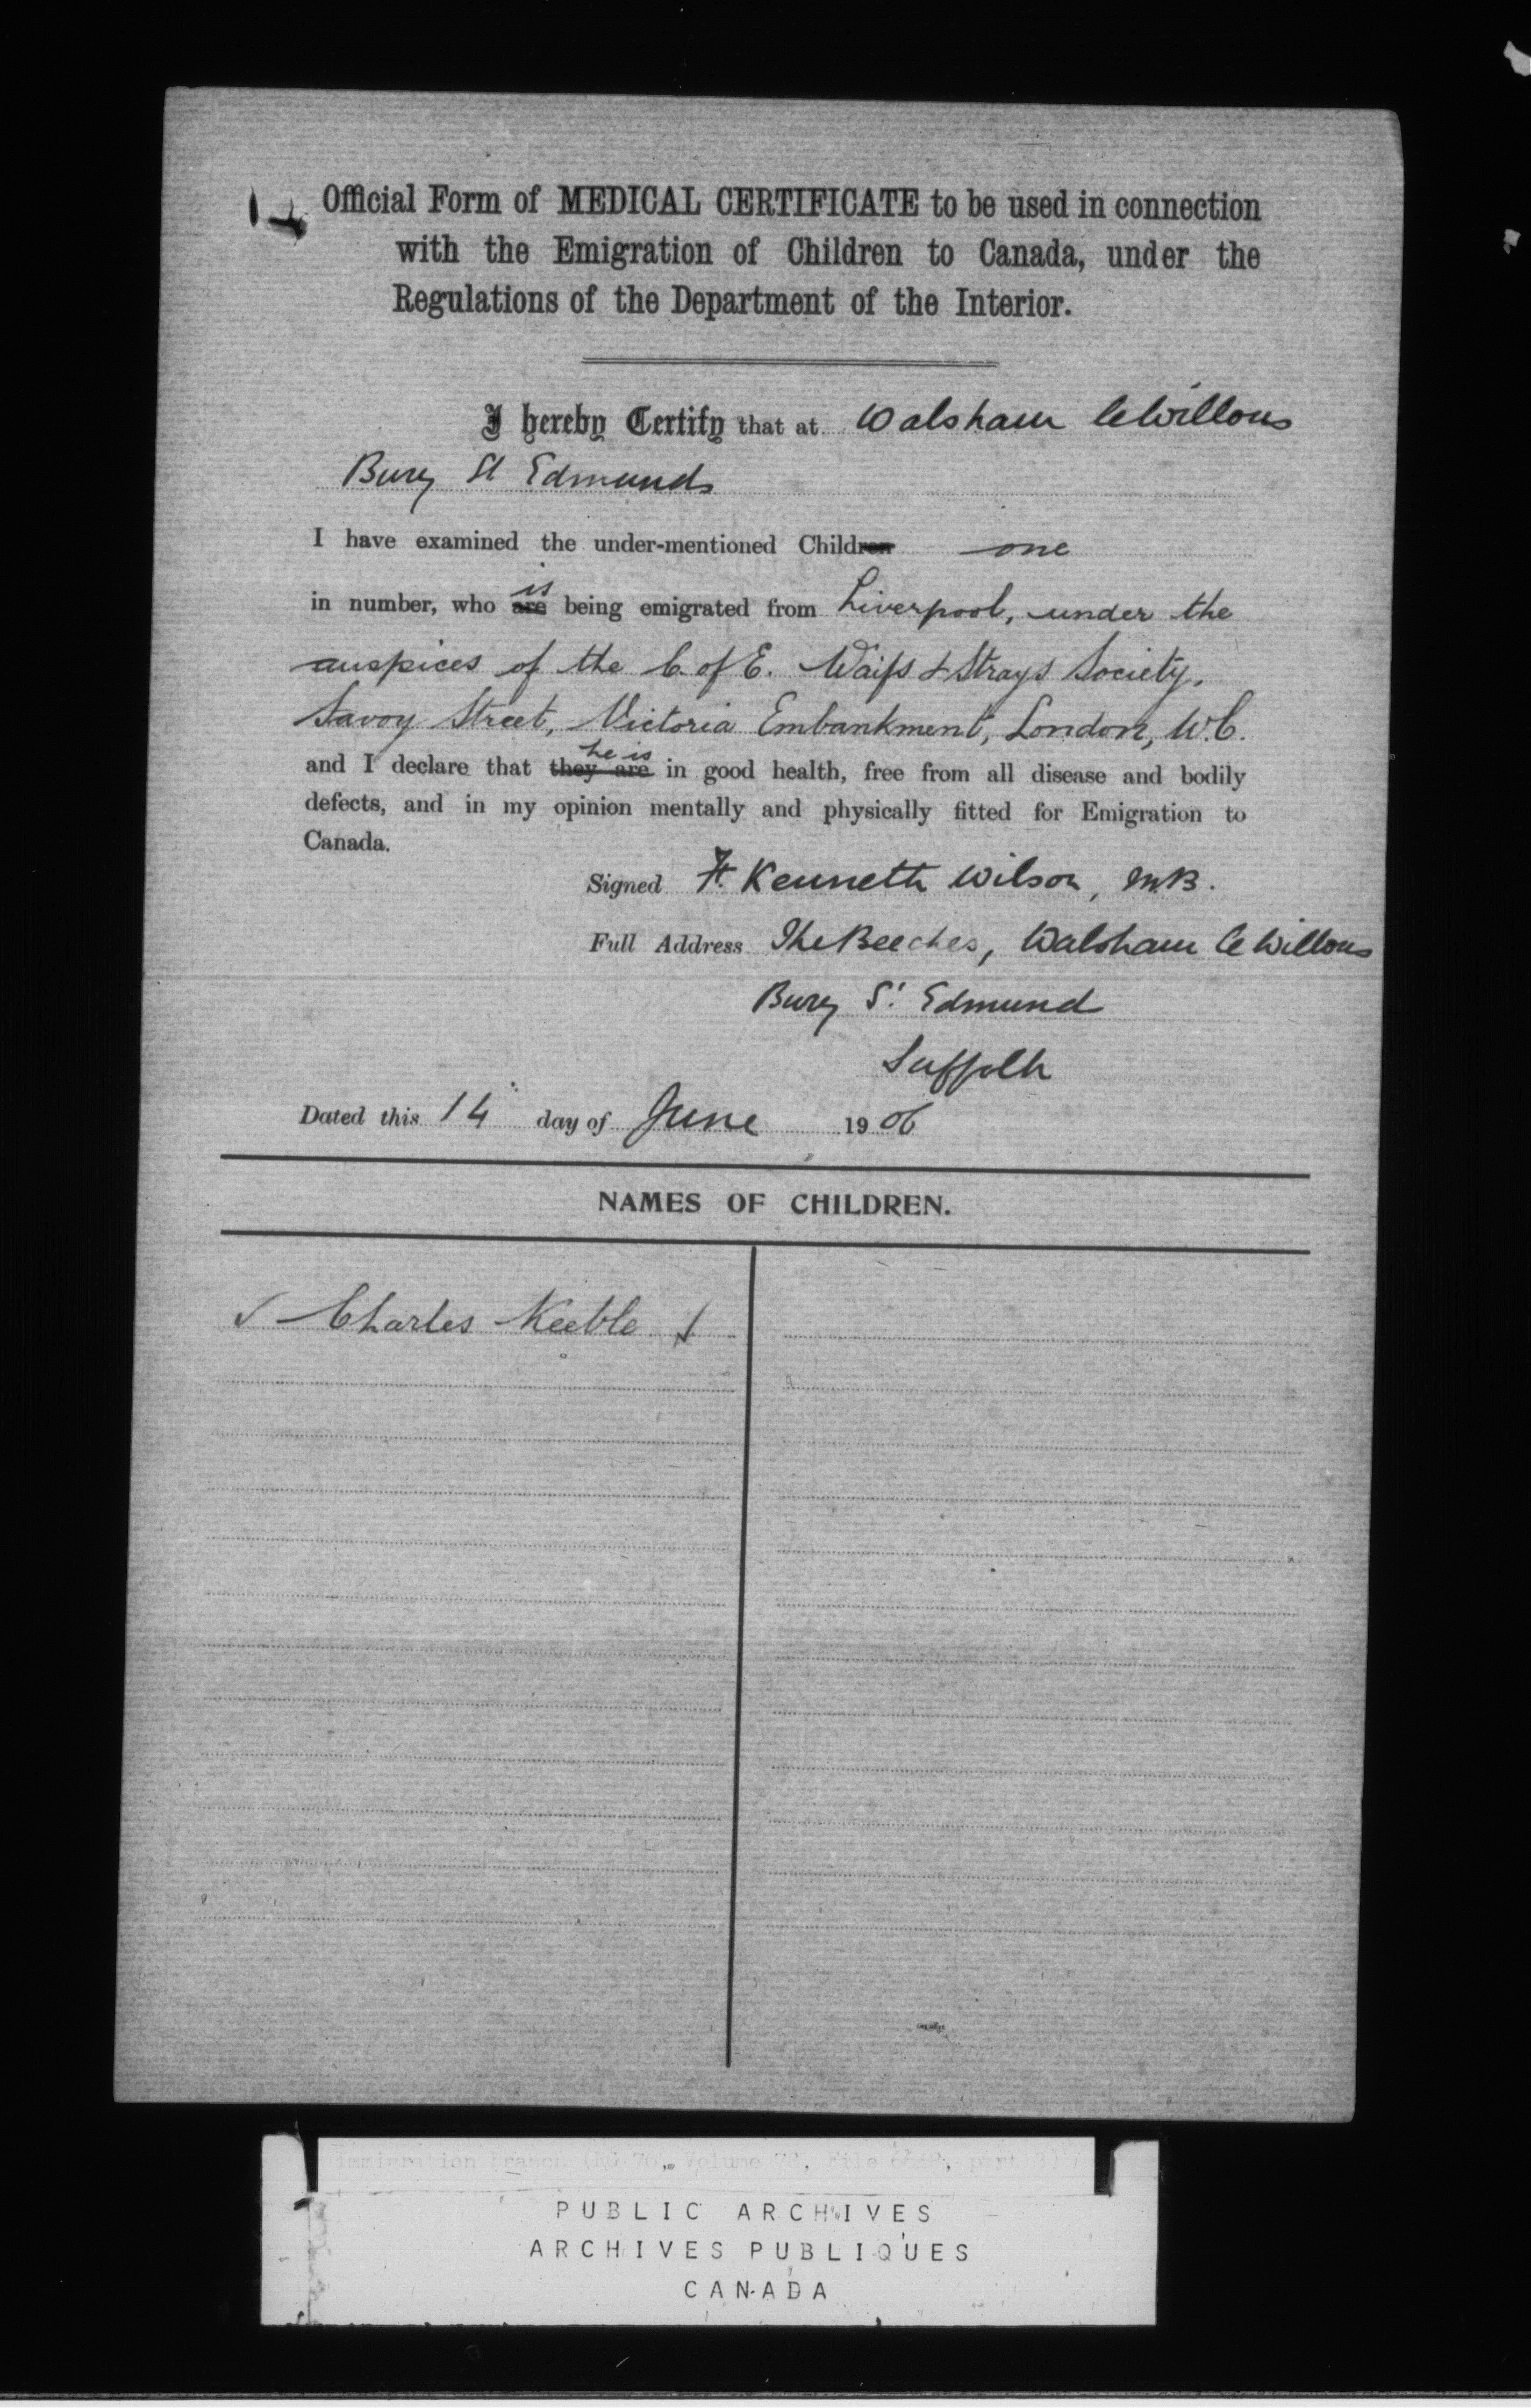 Official Form of MEDICAL CERTIFICATE to be used in connection
with the Emigration of Children to Canada, under the
Regulations of the Department of the Interior.
I hereby Certify that at Walsham le Willows
Bury St Edmunds
I have examined the under-mentioned Children one
is
in number, who are being emigrated from Liverpool, under the
auspices of the C. of E. Waifs & Strays Society,
Savoy Street, Victoria Embankment, London, W.C.
he is
and I declare that they are in good health, free from all disease and bodily
defects, and in my opinion mentally and physically fitted for Emigration to
Canada.
Signed Kenneth Wilson, M.B.
Full Address The Beeches, Walsham le Willows
Bury St Edmund
Suffolk
Dated this 14 day of June 1906
NAMES OF CHILDREN.
✓ Charles Keeble ✓
Immigration Branch (RG 76, Volume 78, File part
PUBLIC ARCHIVES
ARCHIVES PUBLIQUES
CANADA